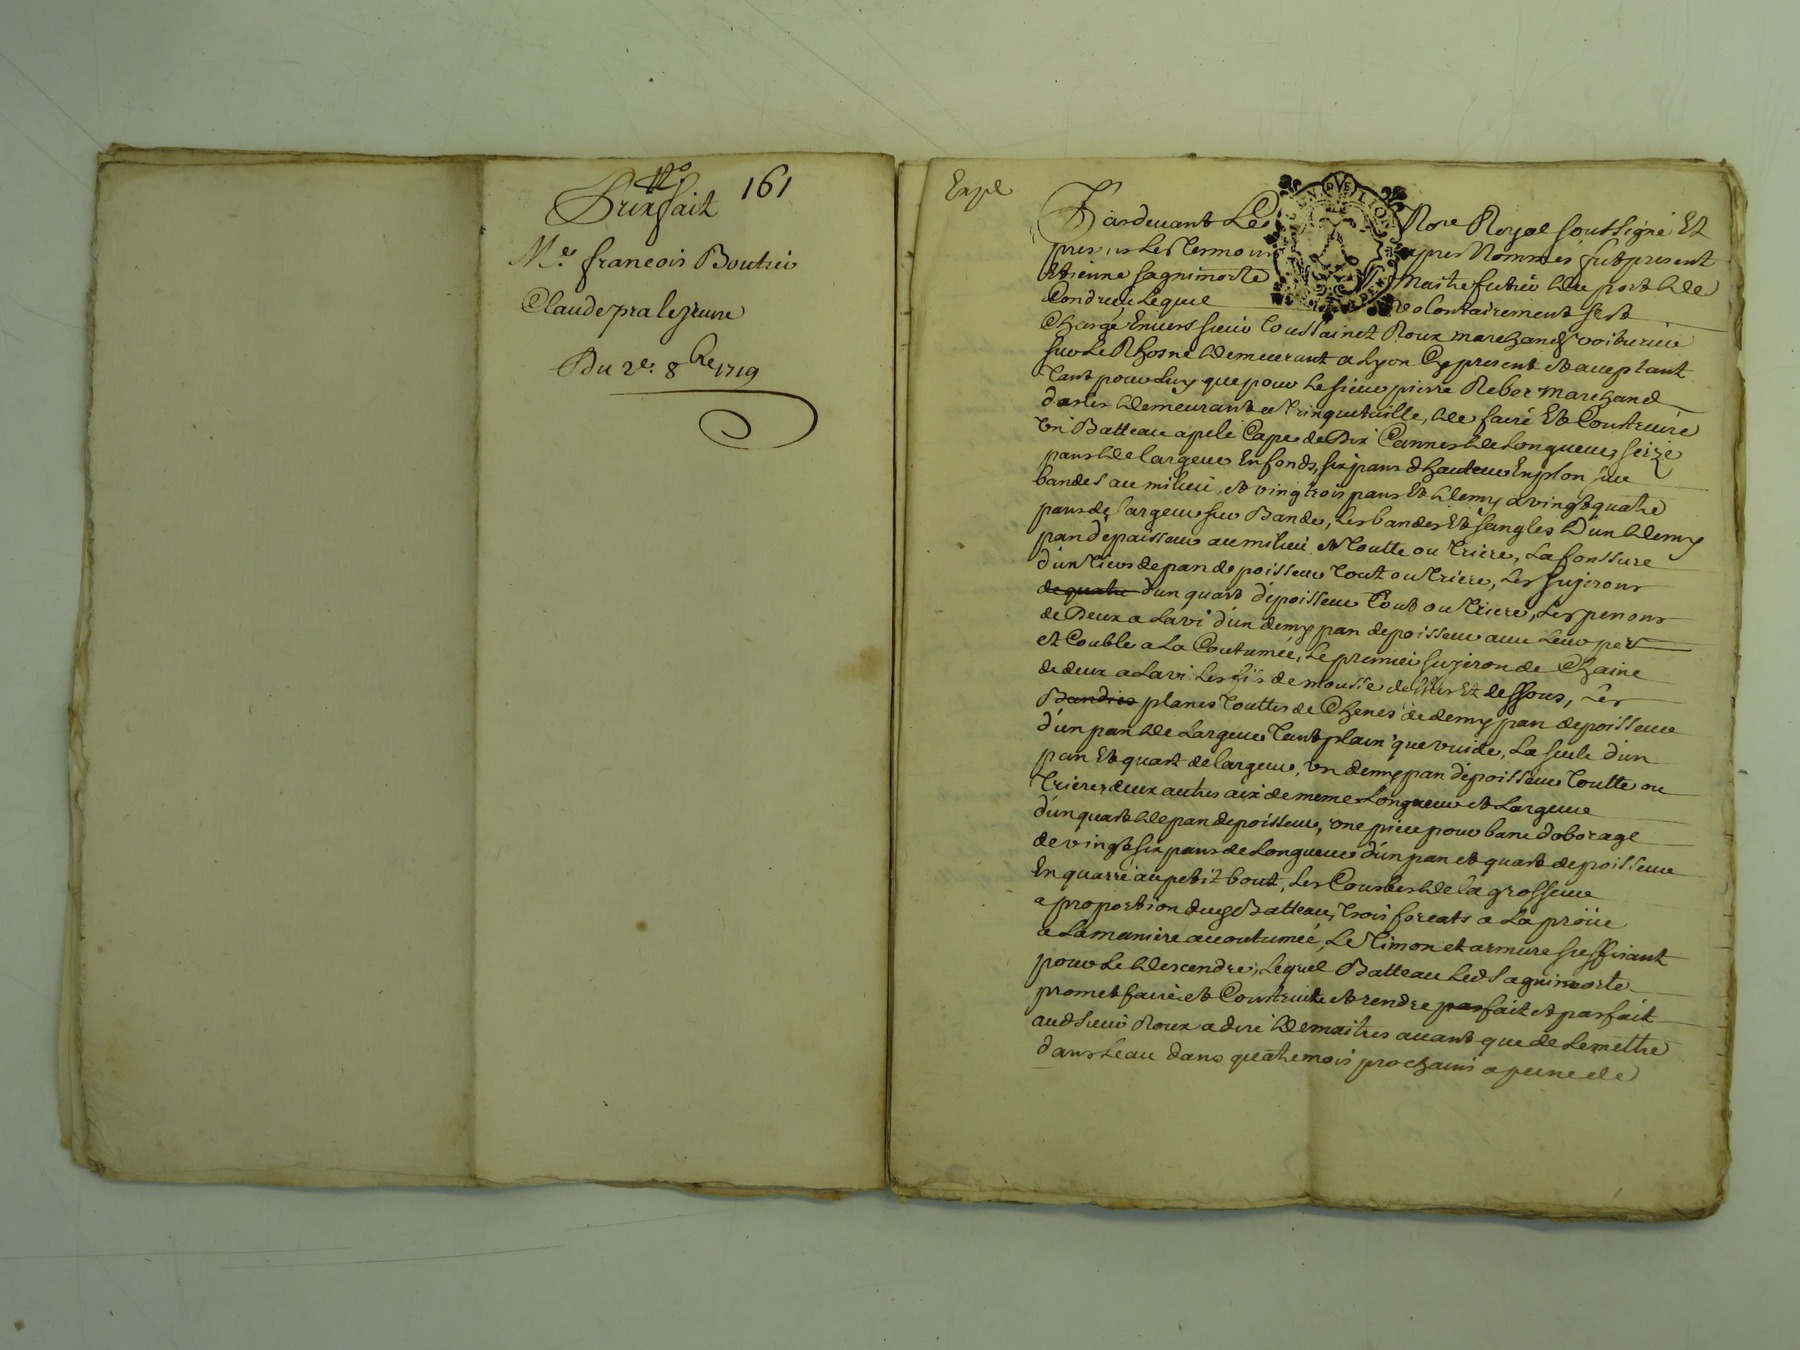 161
Prixfait
Me françois Boutrei
Claude pra le jeune
Du 2e 8bre 1719
Expe
Pardevant Le Nore Royal soubsigné Et
presents Les Temoins apres Nommés fut present
Etienne sagnimorte Maitre futrié du port de
Condrieu, Lequel volontairement s'est
Chargé Envers sieur Toussainct Roux marchand voiturier
sur Le Rhosne demeurant a Lyon Cy present et aceptant
Tant pour Luy que pour Le sieur pierre Reber marchand
darles demeurant a Trinquetaille, de faire Et Construire
Un Batteau apelé Cape de Dix Cannes de Longueur, seize
pans de largeur En fonds, six pans d'hauteur En plon sur
bandes au milieu, et vingtrois pans Et demy a vingtquatre
pans de largeur sur Bande, Les bandes Et sangles D'un demy
pan d'epaisseur au milieu et Toutte ou Triere, La fonssure
d'un Tiers de pan depoisseur Tout ou Triere, Les sujerons
de quatre d'un quart d'epoisseur Tout ou Triere, Les penons
de Deux a Lavi d'un demy pan depoisseur avec Leur pet
et Couble a La Coutumée, Le premier sujeron de Chaine
de deux a Lavi Les fis de mousse dessus Et dessous, Les
planes Touttes de Chenes de demy pan depoisseur
d'un pan de Largeur Tant plain que vuide, La seule d'un
pan Et quart de largeur, un demy pan d'epoisseur Toutte ou
Triere, deux autres aix de meme Longueur et Largeur
d'un quart de pan depoisseur, une piece pour banc d'aborage
de vingtsix pans de Longueur d'un pan et quart depoisseur
En quarré au petit bout, Les Courbes de la grosseur
a proportion dud Batteau, Trois forcats a La proüe
a La maniere accoutumée, Le Timon et armure suffisant
pour Le descendre, Lequel Batteau Led sagnimorte
promet faire et Construire et rendre parfait et parfait
aud sieur Roux a dire de maitres avant que de Le mettre
dans Leau dans quatre mois prochains a peine de